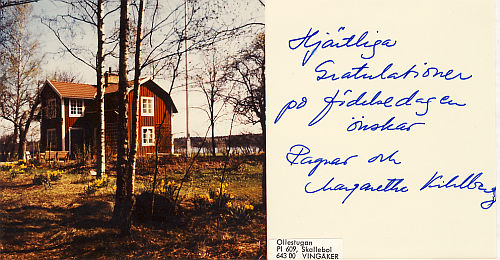 Hjärtliga
Gratulationer
på födelsedagen
önskar
Ragnar och
Margaretha Kihlberg
Ollestugan
Pl 609, Skallebol
643 00 VINGÅKER